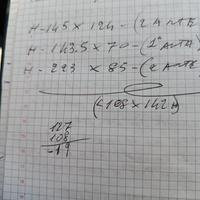 H-145 x 124-(2 ANTE
H-143.5 x 70-(1ª ANTA)
H-223 x 85-(2 ANTE
(<108 x 142 H)
127
108
-19